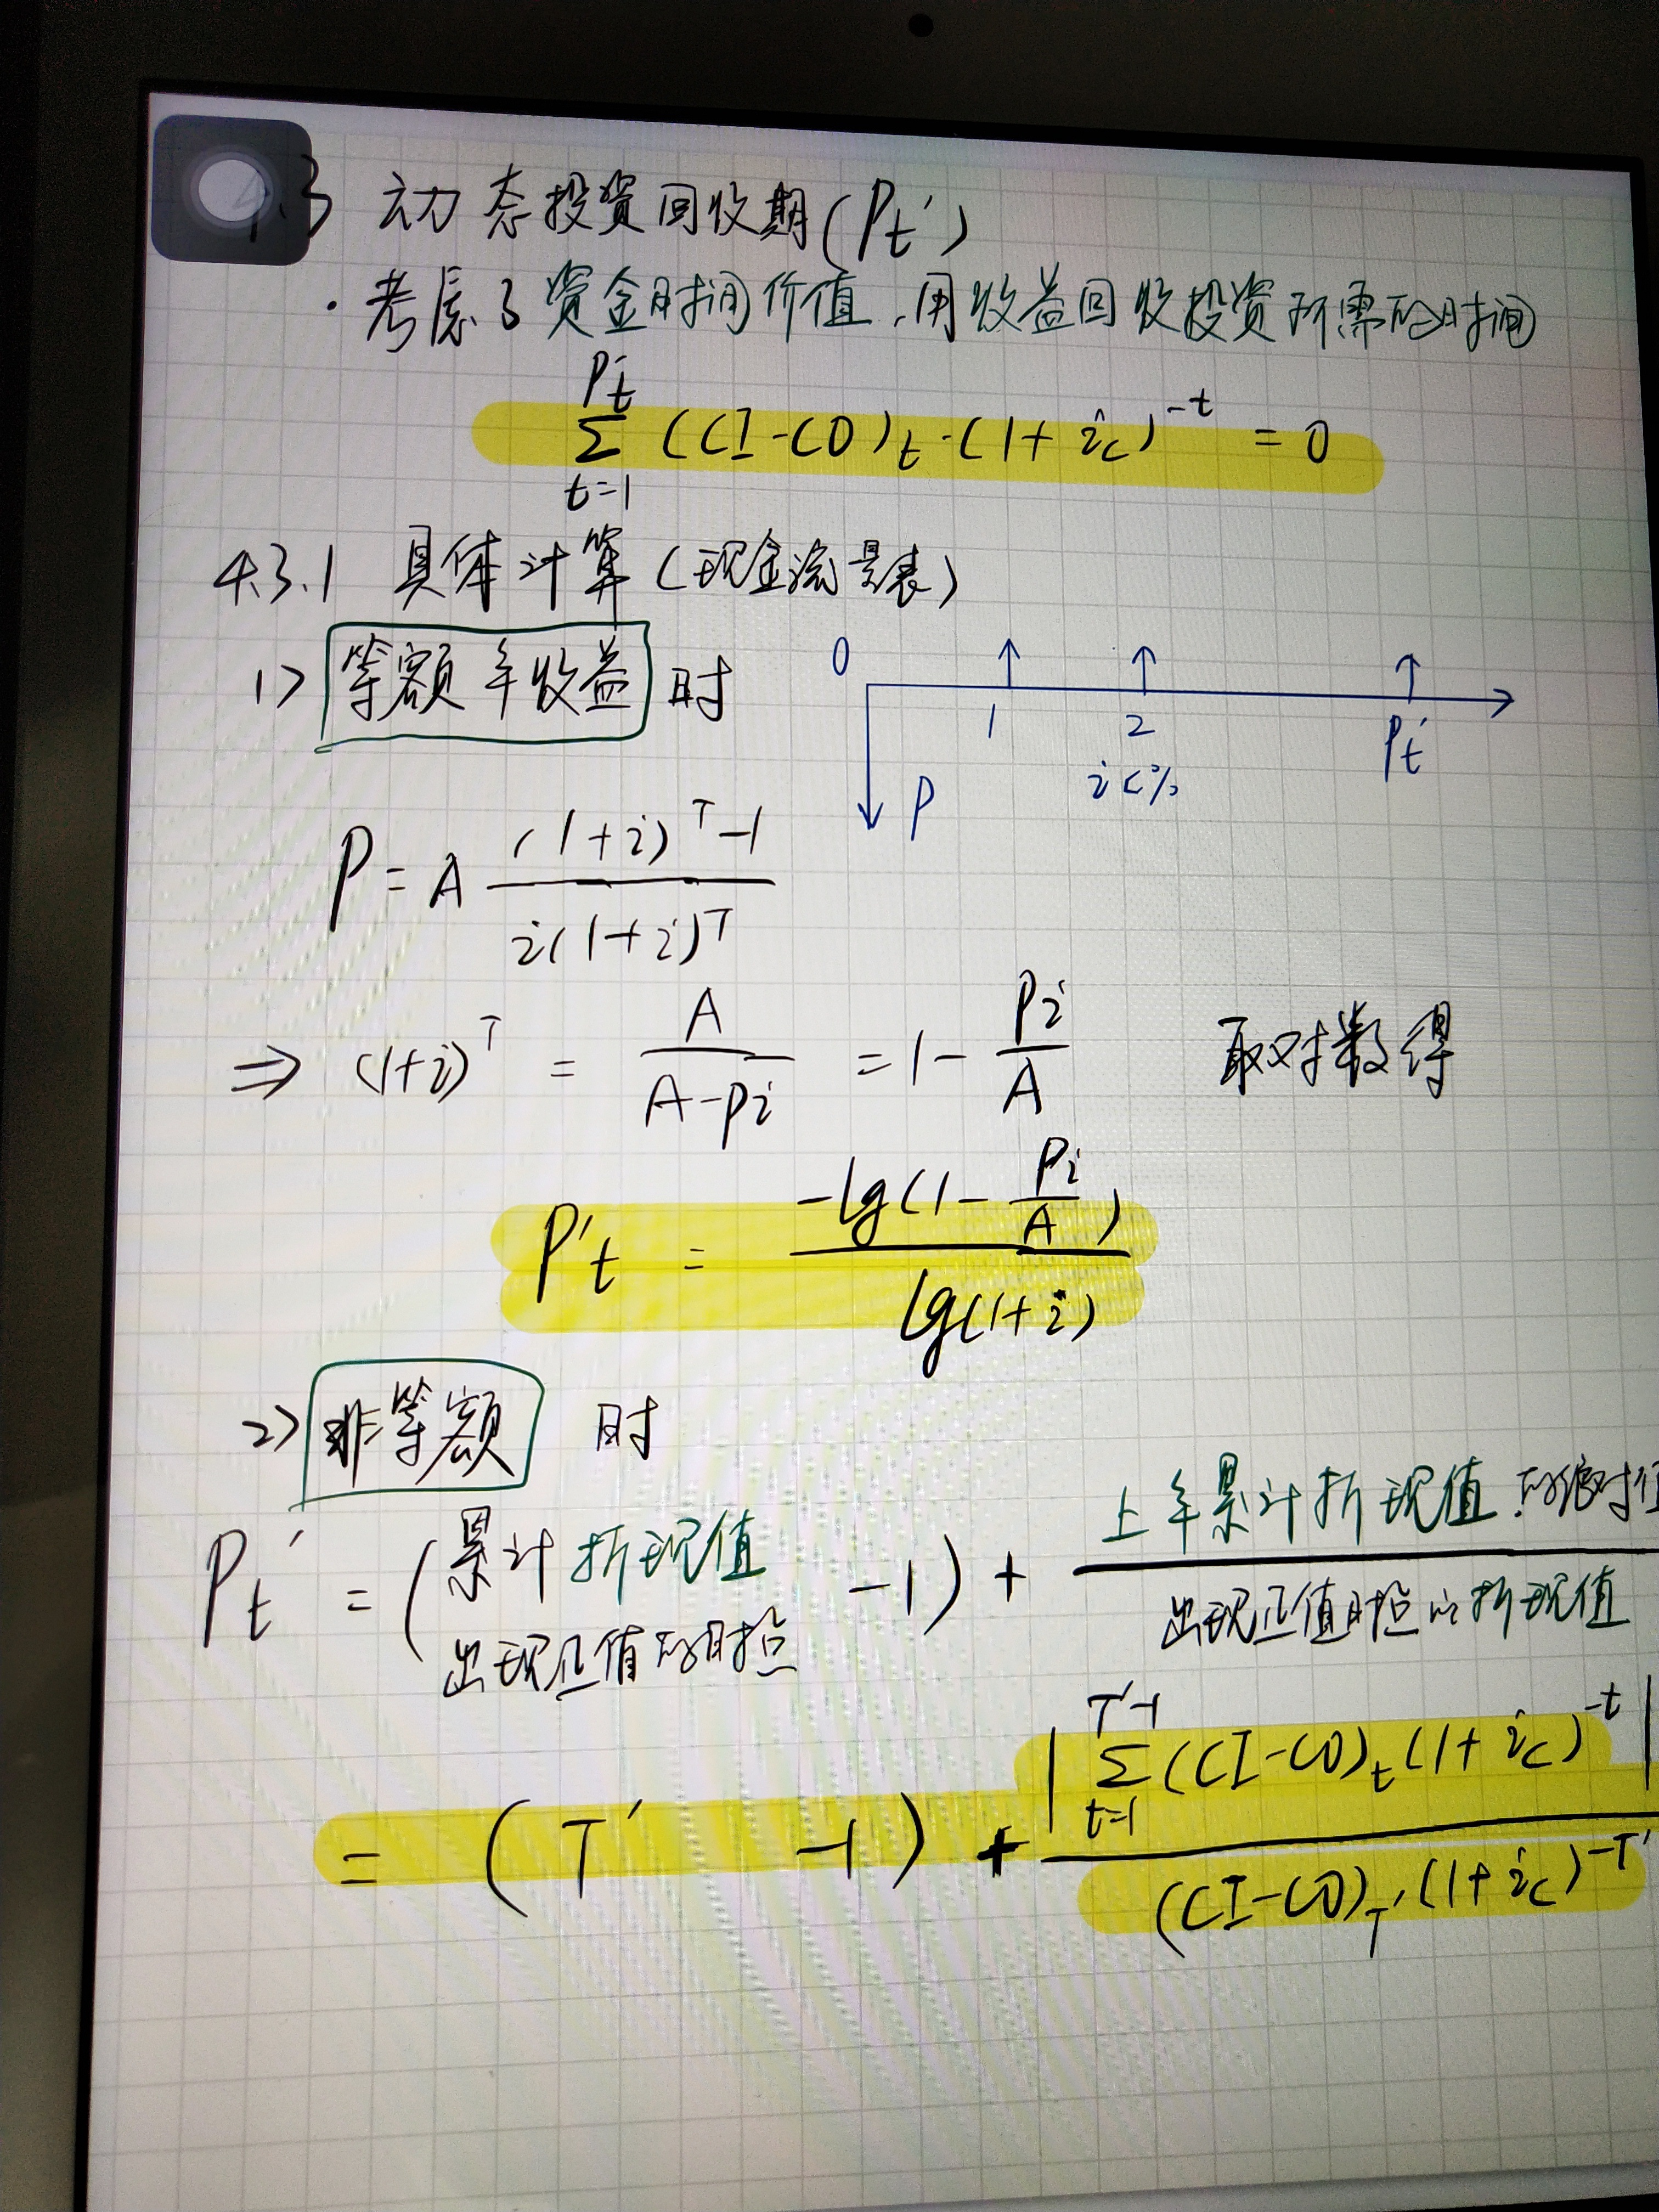 4.3 动态投资回收期(Pt')
·考虑了资金时间价值,用收益回收投资所需的时间
Pt'
Σ (CI-CO)t·(1+ic)^-t = 0
t=1
4.3.1 具体计算(现金流量表)
1> 等额年收益 时
0
1 2 Pt'
ic%
P
P = A ((1+i)^T-1)/(i(1+i)^T)
⇒ (1+i)^T = A/(A-Pi) = 1-Pi/A 取对数得
P't = -lg(1-Pi/A)/lg(1+i)
2> 非等额 时
Pt' = (累计折现值出现正值的时点 -1) + 上年累计折现值的绝对值/出现正值时点的折现值
= (T' -1) + |Σ_{t=1}^{T'-1}(CI-CO)t(1+ic)^-t|/(CI-CO)T'(1+ic)^-T'